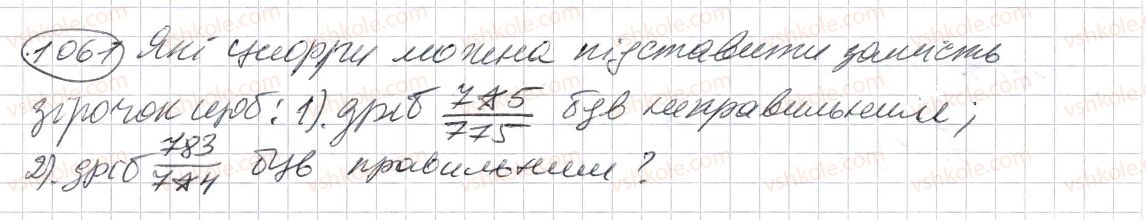 1061 Які цифри можна підставити замість
зірочок щоб: 1). дріб 7*5/775 був неправильним;
2). дріб 783/7*4 був правильним?